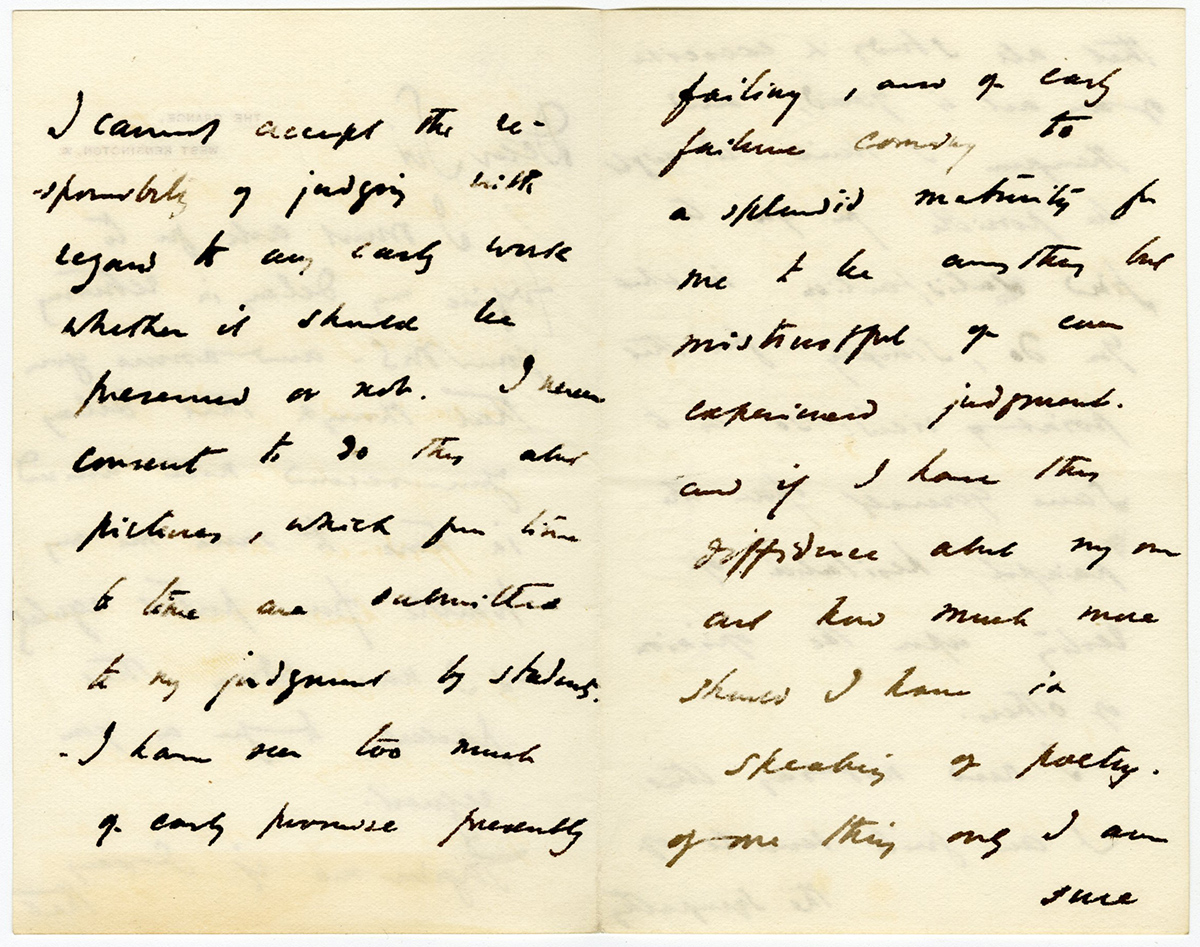 I cannot accept the re-
-sponsibility of judging with
regard to any early work
whether it should be
preserved or not. I never
consent to do this about
pictures, which from time
to time are submitted
to my judgment by students.
- I have seen too much
of early promise presently
failing, and of early
failure coming to
a splendid maturity for
me to be anything but
mistrustful of even
experienced judgment.
and if I have this
diffidence about my own
art how much more
should I have in
speaking of poetry.
of one thing only I am
sure
THE GRANGE,
WEST KENSINGTON, W.